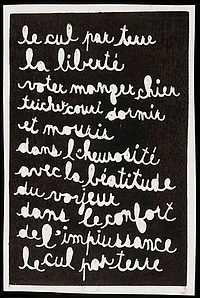 le cul par terre
la liberté
voter manger chier
tricher courir dormir
et mourir
dans l'heurosité
avec la béatitude
du voyeur
dans le confort
de l'impuissance
le cul par terre